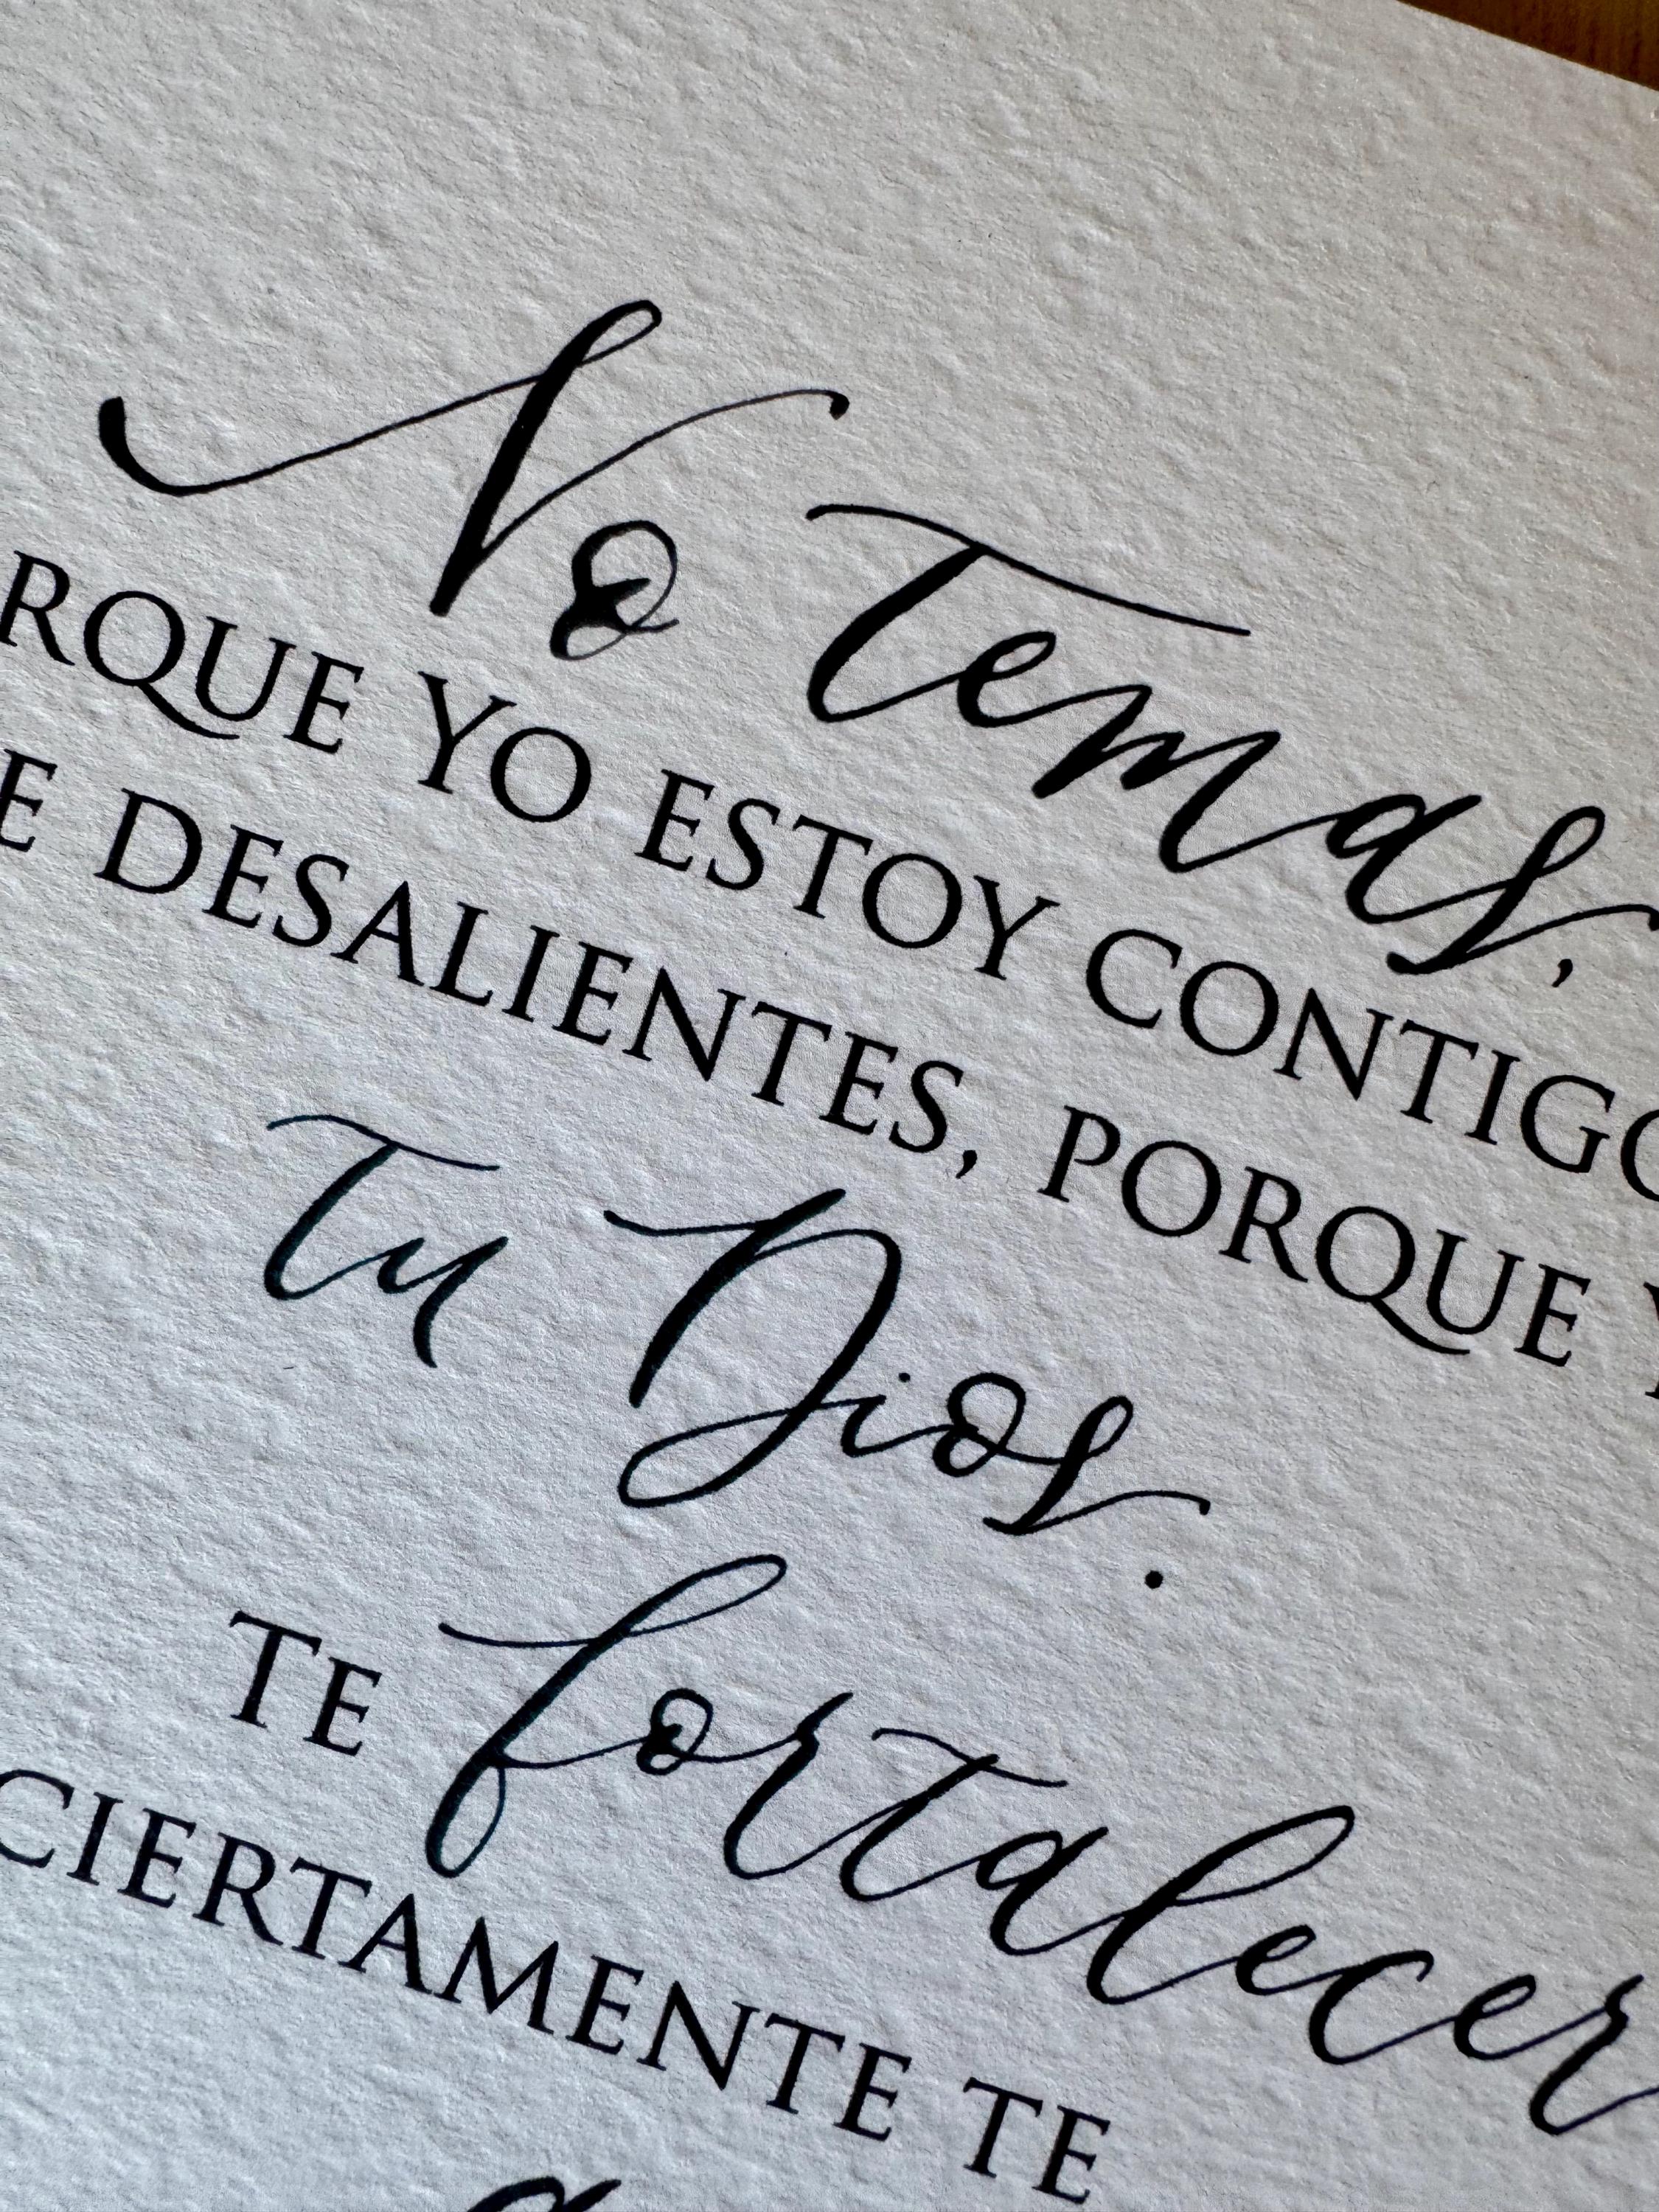 No Temas,
RQUE YO ESTOY CONTIGO
E DESALIENTES, PORQUE Y
Tu Dios.
TE fortalecer
CIERTAMENTE TE